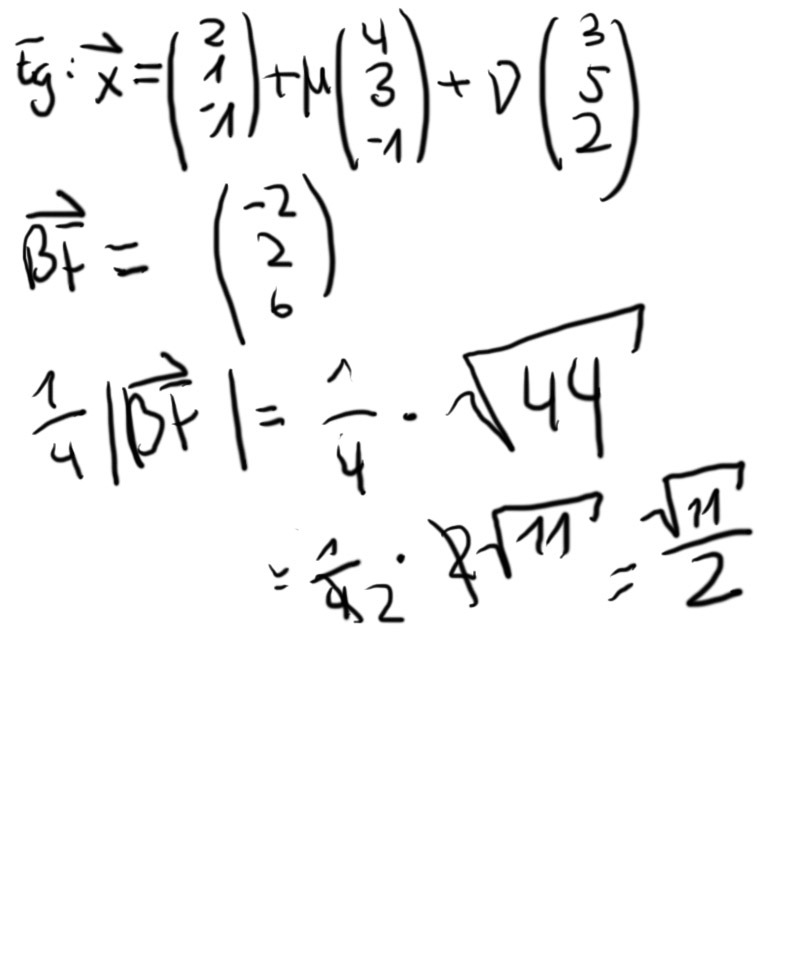 Eg: x⃗ = (2 1 -1) + μ (4 3 -1) + ν (3 5 2)
BF⃗ = (-2 2 6)
1/4 |BF⃗| = 1/4 · √44
= 1/4 2 · 2√11 = √11/2